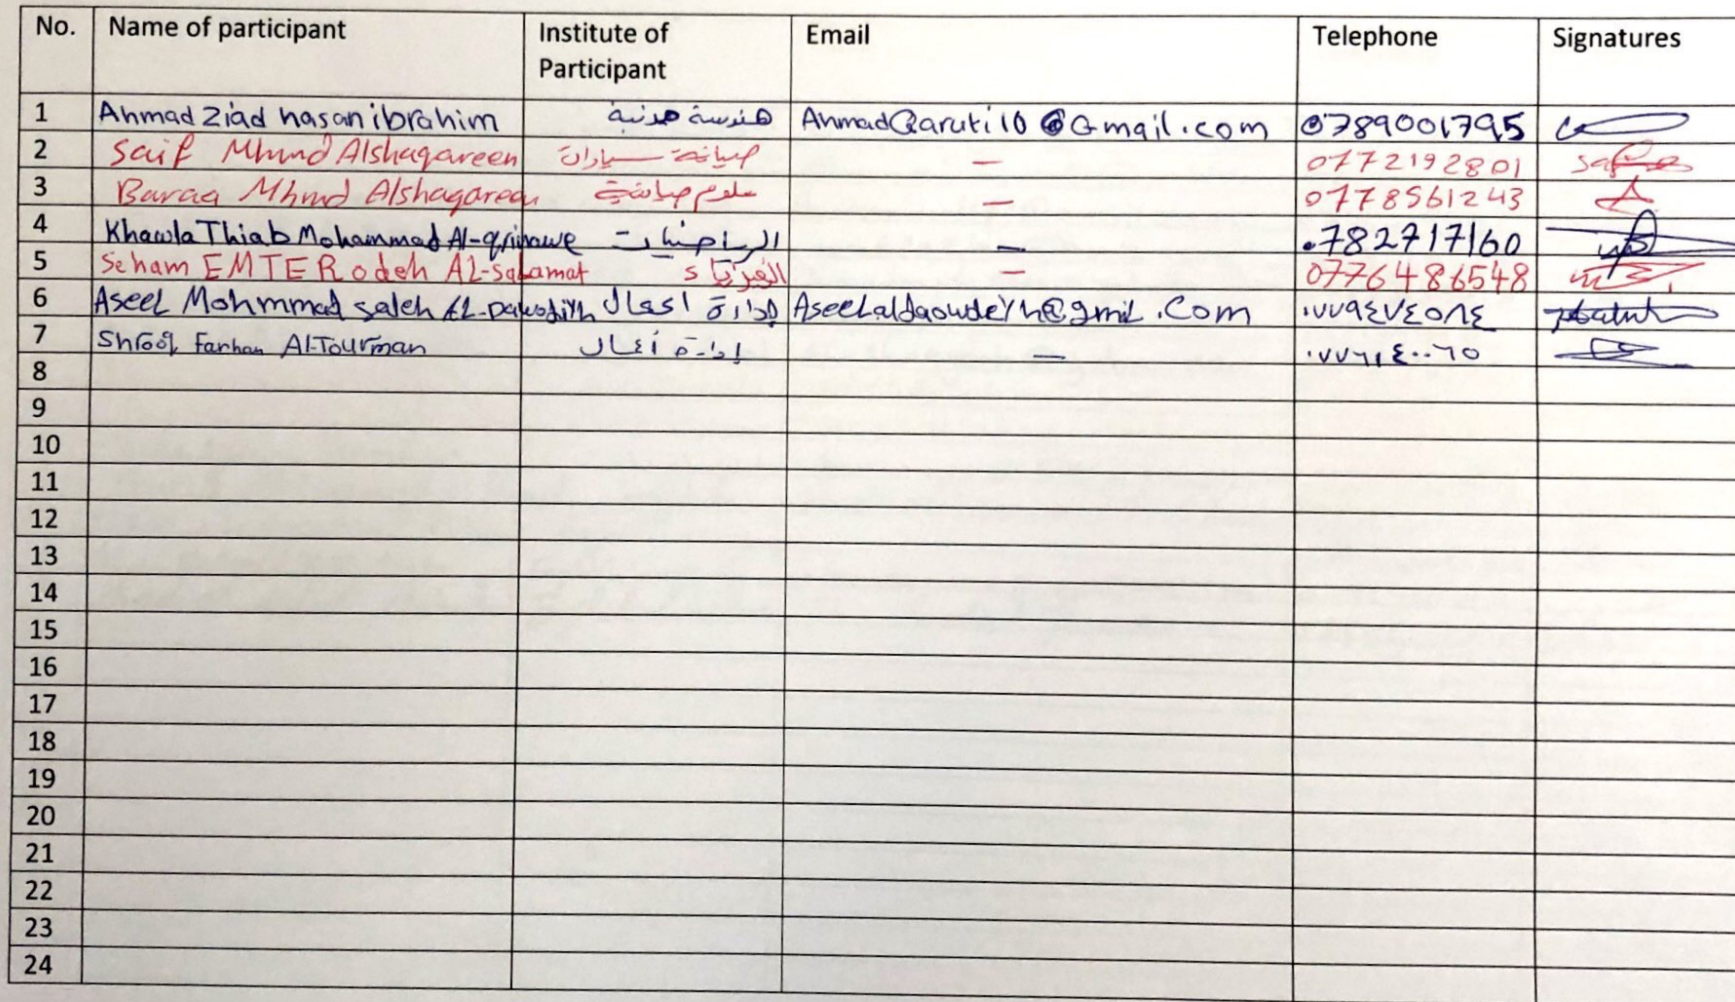 No. Name of participant Institute of Participant Email Telephone Signatures
1 Ahmad Ziad hasan ibrahim هندسة مدنية AhmadQaruti10@Gmail.com 0789001795
2 Saif Mhmd Alshaqareen صيانة سيارات — 0772192801
3 Baraa Mhmd Alshaqareen علوم — 0778561243
4 Khawla Thiab Mohammad الرياضيات — .782717160
5 Seham EMTER odeh AL-salamat الفيزياء — 0776486548
6 Aseel Mohmmad saleh إدارة اعمال ٠٧٧٩٤٧٤٥٨٤
7 Farhan Al-Tourman إدارة أعمال — ٠٧٧٦١٤٠٠٦٥
8
9
10
11
12
13
14
15
16
17
18
19
20
21
22
23
24